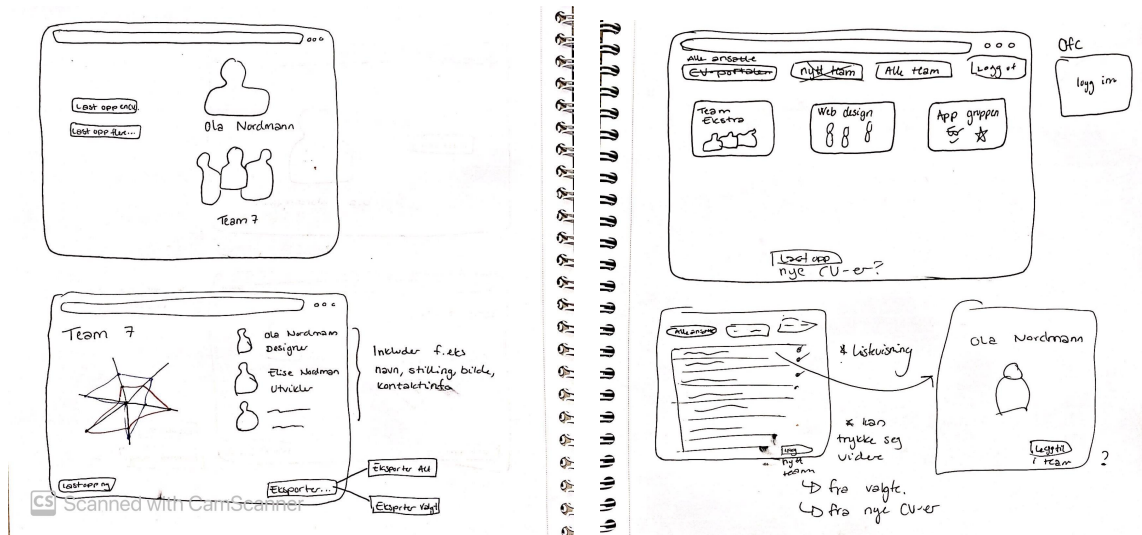 Last opp en CV
Last opp flere...
Ola Nordmann
Team 7
Team 7
Ola Nordmann
Designer
Elise Nordman
Utvikler
Inkluder f.eks
navn, stilling, bilde,
kontaktinfo
Last opp ny
Eksporter...
Eksporter Alt
Eksporter Valgt
CS Scanned with CamScanner
Alle ansatte
CV-portalen
nytt team
Alle team
Logg ut
Ofc
logg inn
Team
Ekstra
Web design
App gruppen
Last opp
nye CV-er?
Alle ansatte
* Listevisning
* kan
trykke seg
videre
Lag
nytt
team
↳ fra valgte.
↳ fra nye CV-er
Ola Nordmann
Legg til
i team
?